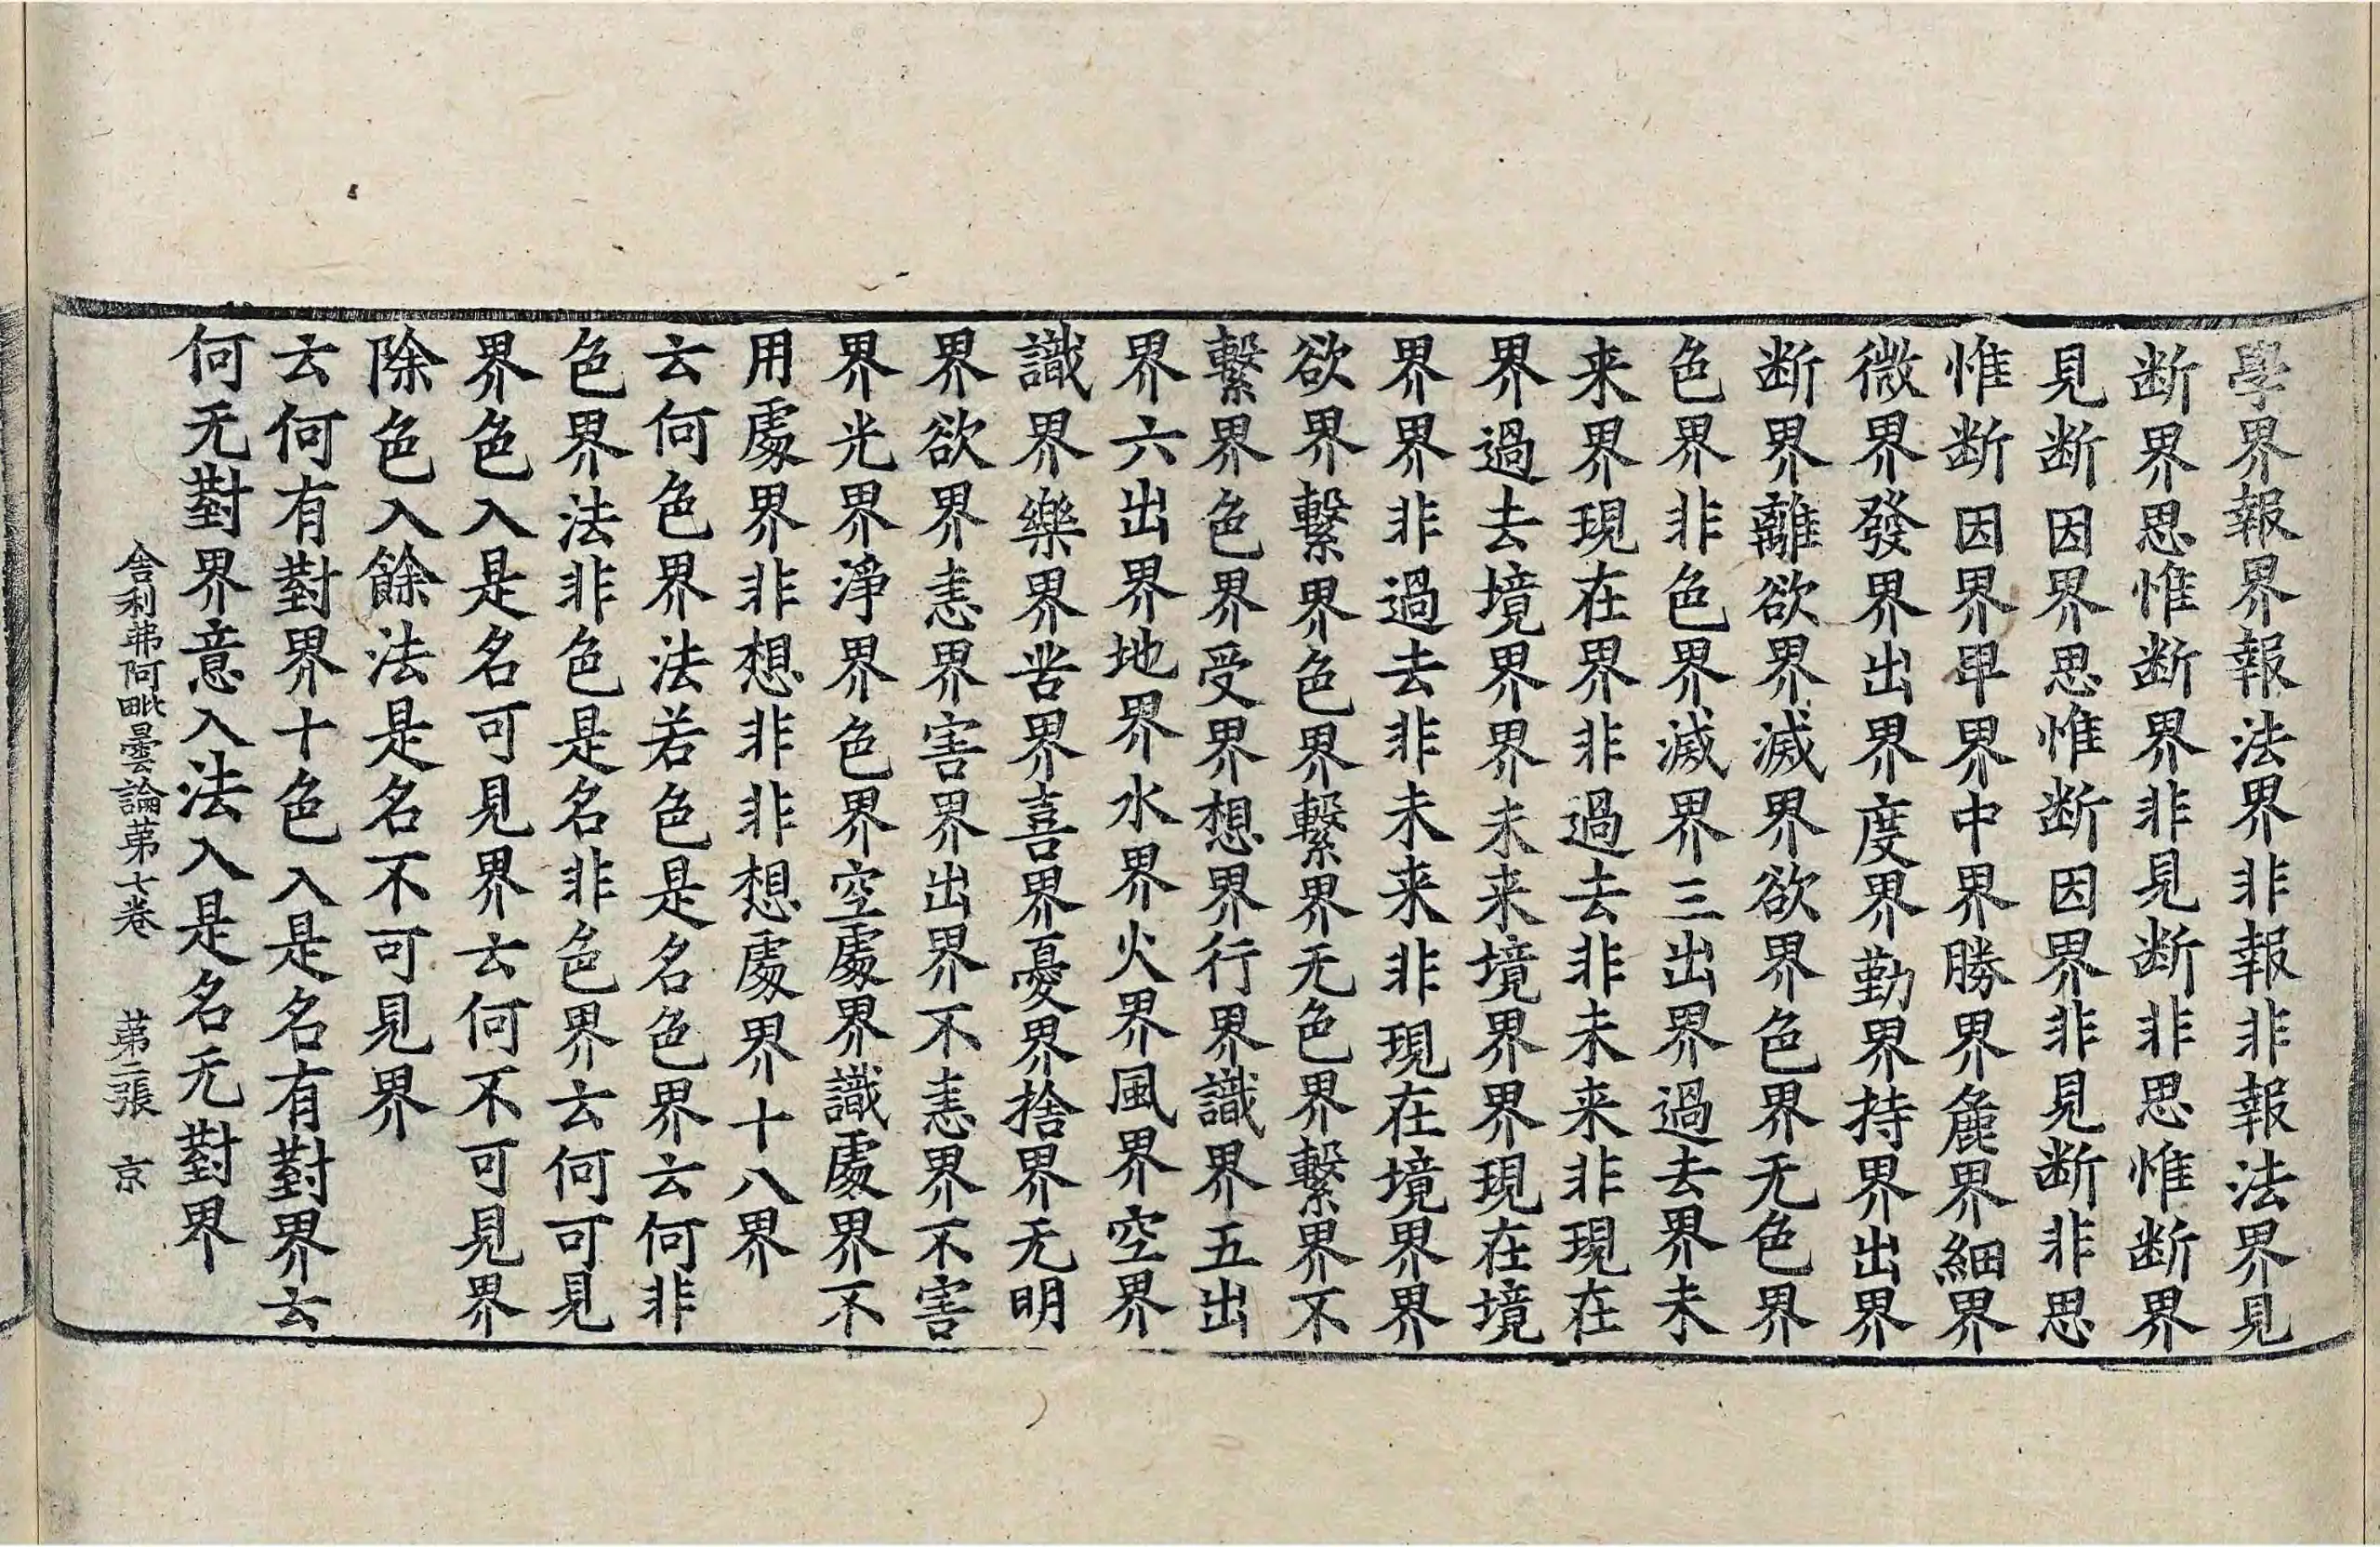 學界報界報法界非報非報法界見
断界思惟断界非見断非思惟断界
見断因界思惟断因界非見断非思
惟断因界卑界中界勝界麁界細界
微界發界出界度界勤界持界出界
断界離欲界滅界欲界色界无色界
色界非色界滅界三出界過去界未
来界現在界非過去非未来非現在
界過去境界界未来境界界現在境
界界非過去非未来非現在境界界
欲界繫界色界繫界无色界繫界不
繫界色界受界想界行界識界五出
界六出界地界水界火界風界空界
識界樂界苦界喜界憂界捨界无明
界欲界恚界害界出界不恚界不害
界光界淨界色界空處界識處界不
用處界非想非非想處界十八界
云何色界法若色是名色界云何非
色界法非色是名非色界云何可見
界色入是名可見界云何不可見界
除色入餘法是名不可見界
云何有對界十色入是名有對界云
何无對界意入法入是名无對界
舍利弗阿毗曇論苐七卷 苐二張 京